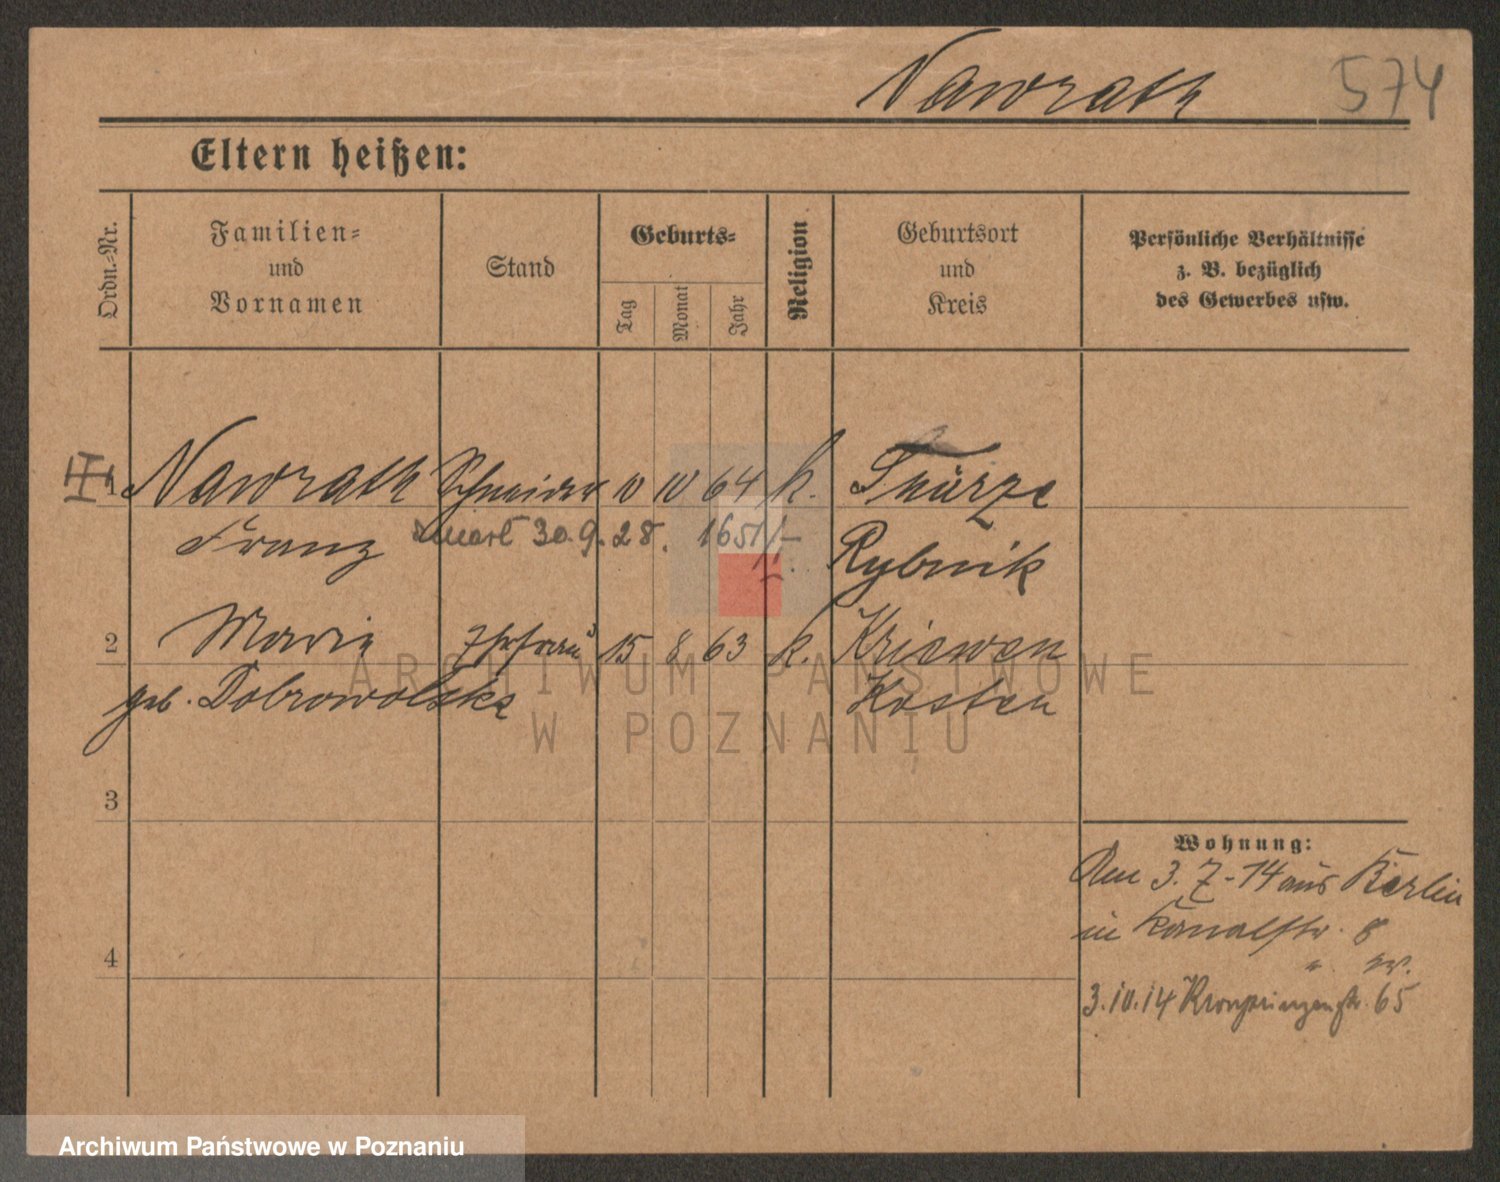 Nawrath 574
Eltern heißen:
Ordn.-Nr.
Familien-
und
Vornamen
Stand
Geburts-
Tag
Monat
Jahr
Religion
Geburtsort
und
Kreis
Persönliche Verhältnisse
z. B. bezüglich
des Gewerbes usw.
1 Nawrath Schneider 10 10 64 k.
Franz zmarł 30.9.28. 1651/
Rybnik
2 Marie Ehefrau 15 8 63 k. Kriewen
geb. Dobrowolska Kosten
ARCHIWUM PAŃSTWOWE
W POZNANIU
3
Wohnung:
Am 3. 7-14 aus Berlin
in Kanalstr. 8
4
3.10.14 Kronprinzenstr. 65
Archiwum Państwowe w Poznaniu